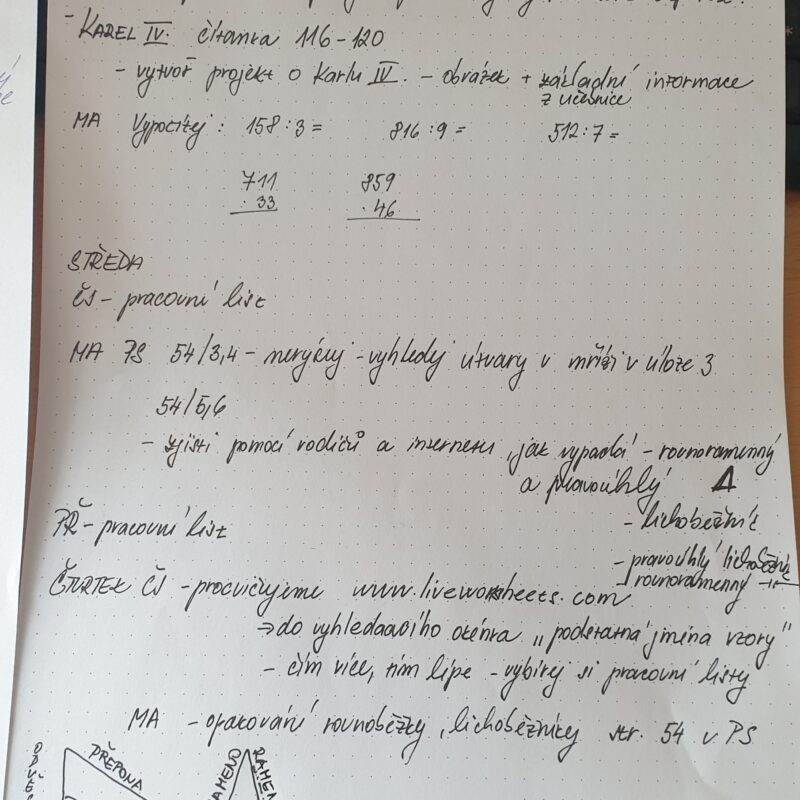 - KAREL IV. čítanka 116-120
- vytvoř projekt o Karlu IV. - obrázek + základní informace
z učebnice
MA Vypočítej : 158 : 3 = 816 : 9 = 512 : 7 =
711 859
. 33 . 46
STŘEDA
ČJ - pracovní list
MA PS 54/3,4 - nerýsuj - vyhledej útvary v mříži v úloze 3
54/5,6
- zjisti pomocí rodičů a internetu, jak vypadá - rovnoramenný
a pravoúhlý
- lichoběžník
PŘ - pracovní list
- pravoúhlý lichoběžník
rovnoramenný -"-
ČTVRTEK ČJ - procvičujeme www.liveworksheets.com
⇒ do vyhledávacího okénka „podstatná jména vzory"
- čím více, tím lépe - vybírej si pracovní listy
MA - opakování rovnoběžky, lichoběžníky str. 54 v PS
PŘEPONA
RAMENO